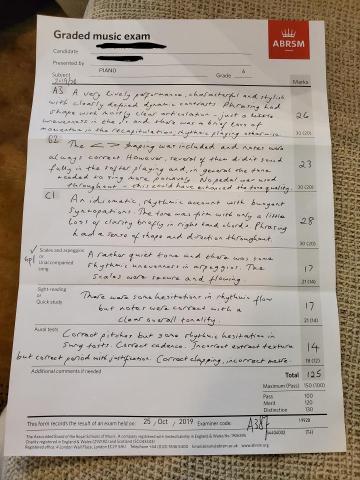 Graded music exam
ABRSM
Candidate
Presented by
Subject PIANO Grade 6
2019/20
Marks
A3 A very lively performance, characterful and stylish
with clearly defined dynamic contrasts. Phrasing had
shape with mostly clear articulation - just a little
unevenness in the and there was a tiny loss of
momentum in the recapitulation, rhythmic playing otherwise.
26
30 (20)
B2 The < > shaping was included and notes were
always correct. However, several of them didn't sound
fully in the softer playing and, in general the tone
needed to ring more, No pedal was used
throughout - this could have enhanced the tone quality.
23
30 (20)
C1 An idiomatic, rhythmic account with buoyant
syncopations. The tone was firm with only a little
loss of clarity briefly in right hand chords. Phrasing
had a sense of shape and direction throughout.
28
30 (20)
Scales and arpeggios
or
Unaccompanied
song
A rather quiet tone and there was some
rhythmic unevenness in arpeggios. The
scales were secure and flowing.
17
21 (14)
Sight-reading
or
Quick study
There were some hesitations in rhythmic flow
but notes were correct with a
clear overall tonality.
17
21 (14)
Aural tests
Correct pitches but some rhythmic hesitation in
sung tests. Correct cadence. Incorrect texture
but correct period with justification. Correct clapping, incorrect metre.
14
18 (12)
Additional comments if needed
Total 125
Maximum (Pass) 150 (100)
Pass 100
Merit 120
Distinction 130
This form records the result of an exam held on: 25 / Oct / 2019 Examiner code: A387
The Associated Board of the Royal Schools of Music